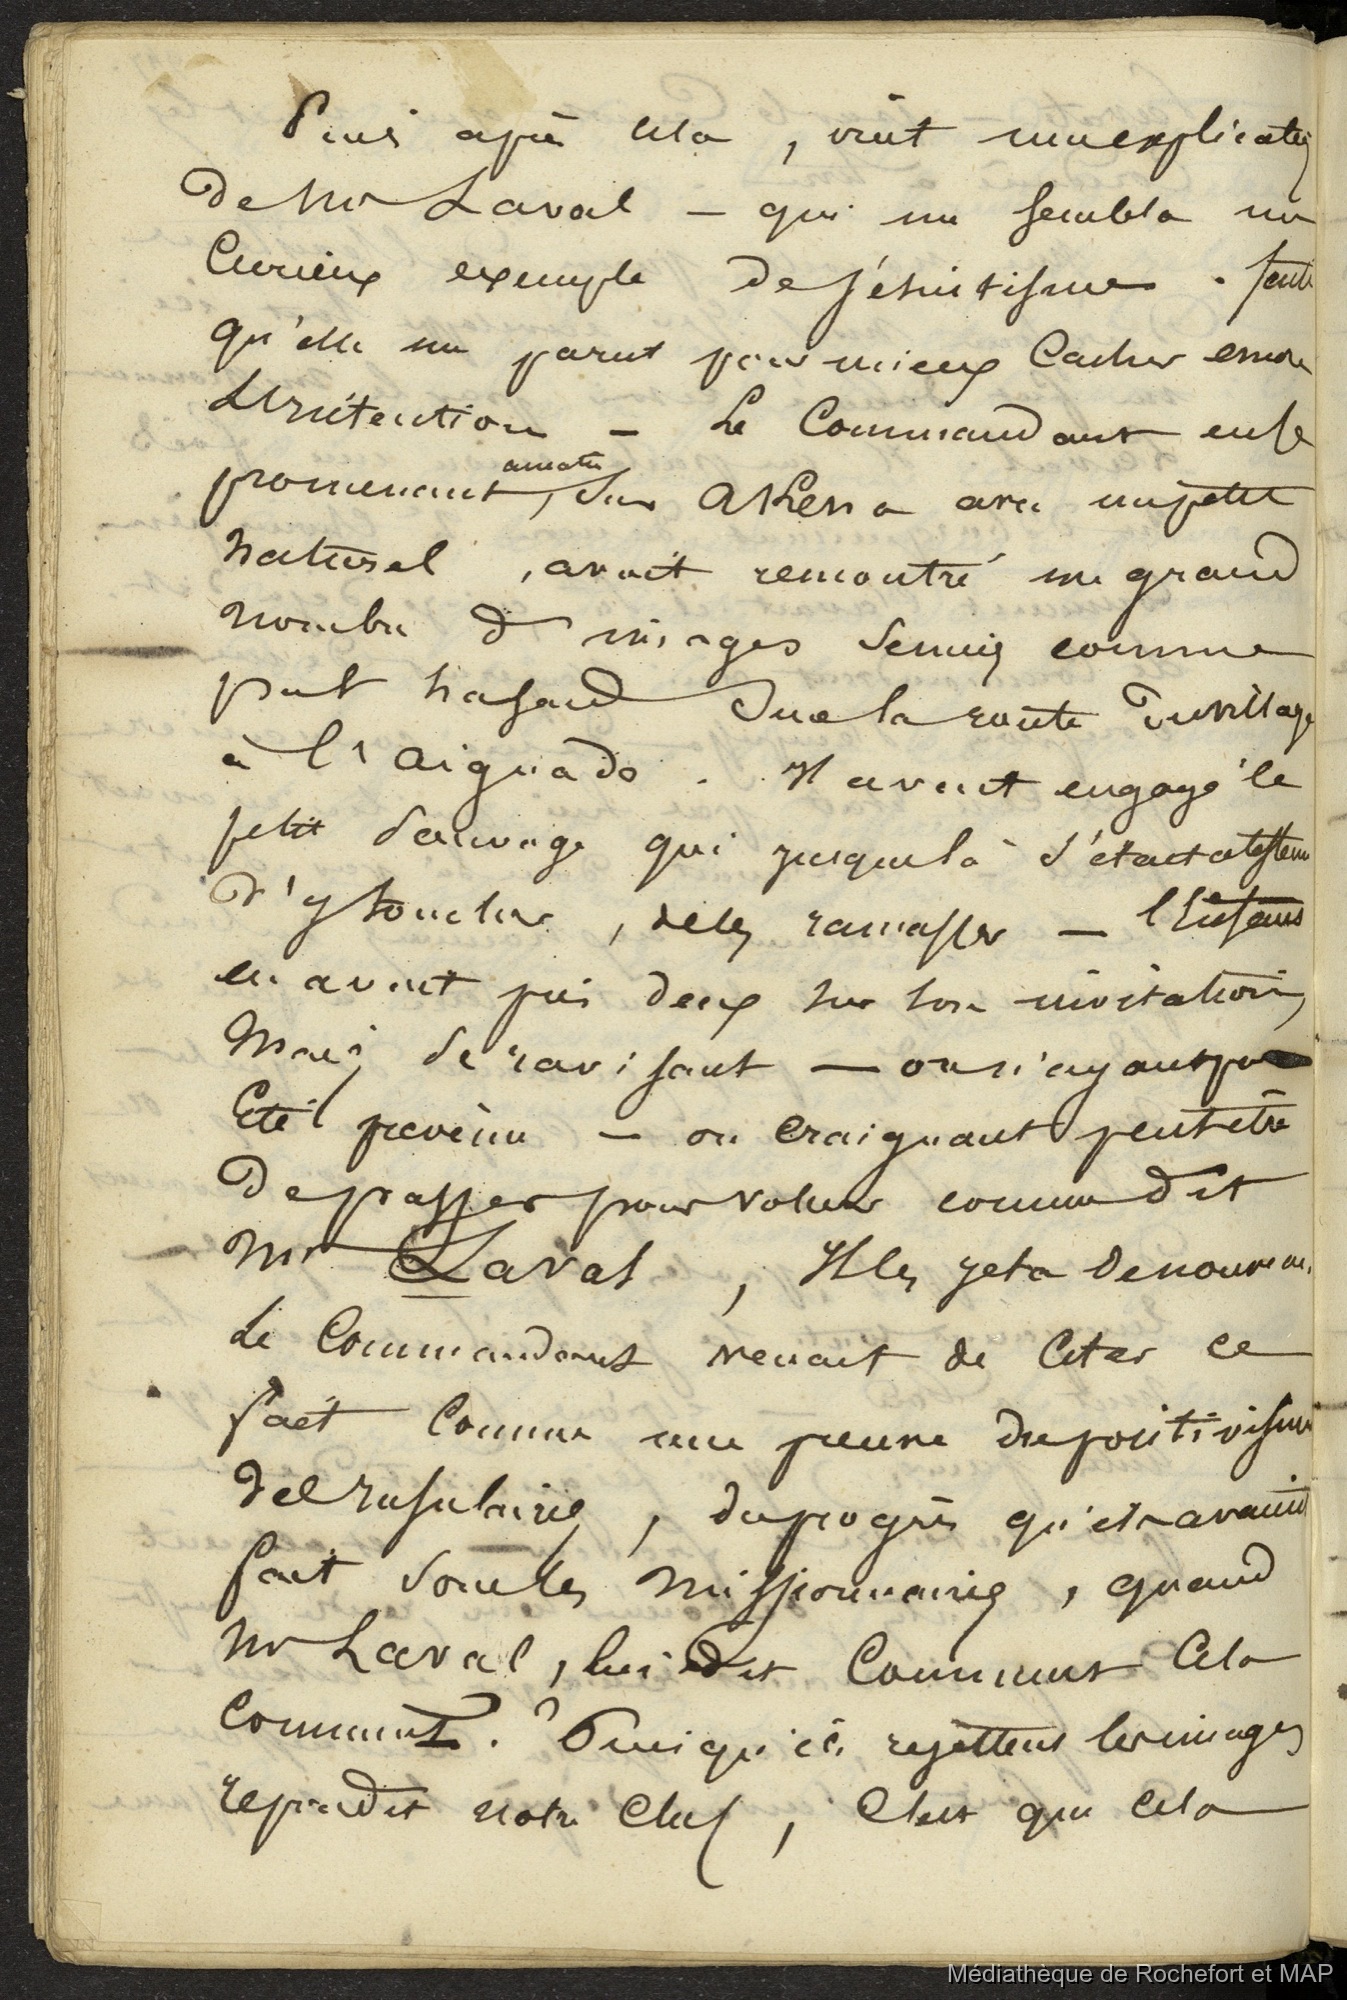 Puis après cela, vint une explication
de Mr Laval – qui me sembla un
Curieux exemple de jésuitisme.
qu'elle me parut pour mieux Cacher encore
– Le Commandant en se
promenant, sur AKena avec un petit
naturel, avait rencontré un grand
nombre d'images semées comme
par hasard sur la route du village
à l'aiguade. Il avait engagé le
petit sauvage qui jusque là s'était abstenu
d'y toucher, de les ramasser – l'Enfant
en avait pris deux sur son invitation,
Mais se ravisant – ou n'ayant pas
Eté prévenu – ou craignant peut être
de passer pour voleur comme dit
Mr Laval, Il les jeta de nouveau.
Le Commandant venait de Citer ce
fait Comme une preuve du positivisme
des Insulaires, du progrès qu'ils avaient
fait sous les Missionnaires, quand
Mr Laval, lui dit Comment Cela
comment.? Puisqu'ils rejettent les images
repondit notre Chef, C'est que Cela